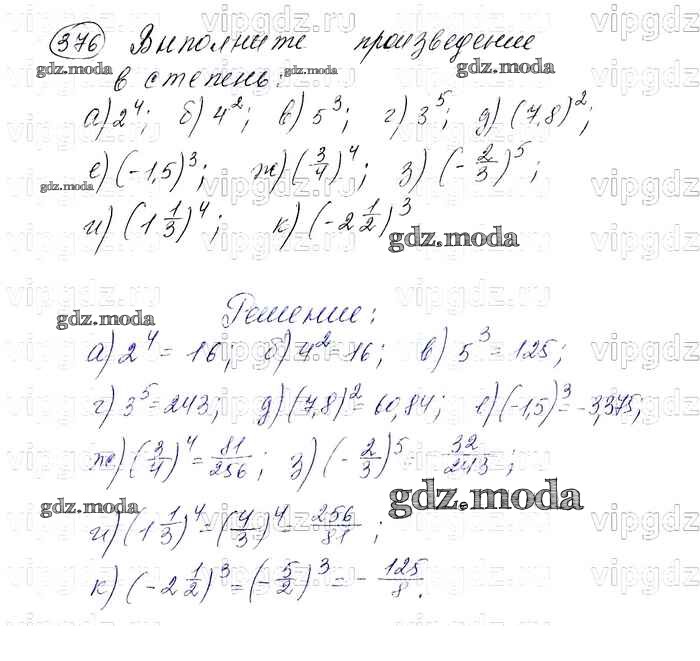 376 Выполните произведение
в степень:
а) 2^4; б) 4^2; в) 5^3; г) 3^5; д) (7,8)^2;
е) (-1,5)^3; ж) (3/4)^4; з) (-2/3)^5;
и) (1 1/3)^4; к) (-2 1/2)^3
gdz.moda
Решение:
а) 2^4 = 16; б) 4^2 = 16; в) 5^3 = 125;
г) 3^5 = 243; д) (7,8)^2 = 60,84; е) (-1,5)^3 = -3,375;
ж) (3/4)^4 = 81/256; з) (-2/3)^5 = - 32/243;
и) (1 1/3)^4 = (4/3)^4 = 256/81;
к) (-2 1/2)^3 = (-5/2)^3 = - 125/8.